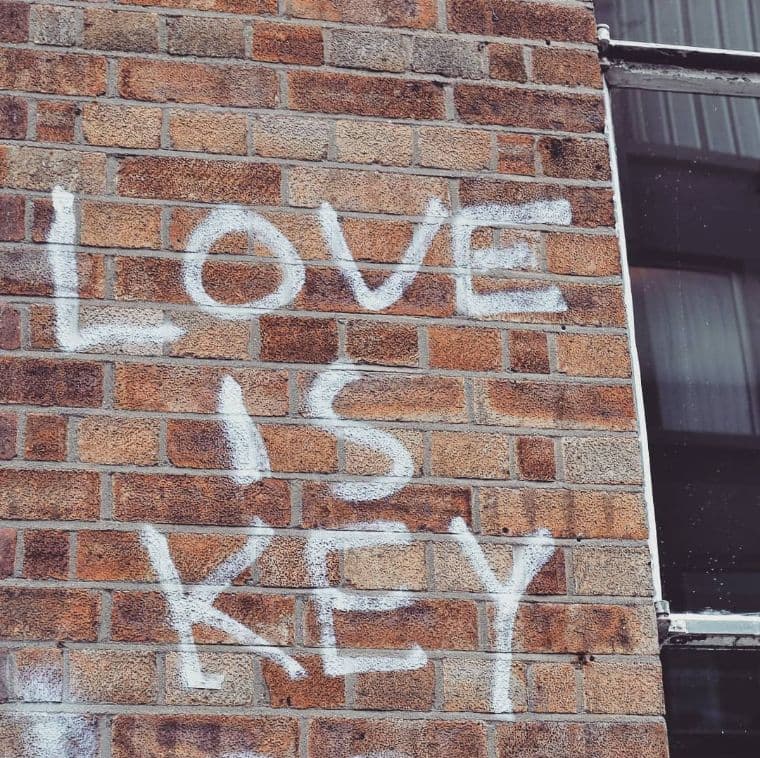 LOVE
IS
KEY